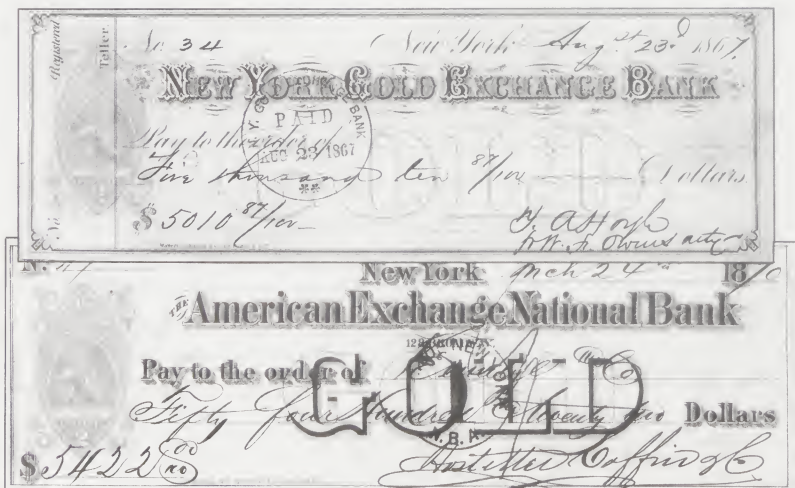 Registered
Teller
No. 34 New York Aug st 23d 1867
NEW YORK GOLD EXCHANGE BANK
PAID
AUG 23 1867
Pay to the order of
Five thousand ten 87/100 Dollars
GOLD
$ 5010 87/100
No. New York Mch 24th 1870
THE American Exchange National Bank
Pay to the order of & Co
GOLD
Fifty four Hundred & twenty two Dollars
N.B.A.
$ 5422 00/00
Hostetter Coffin & Co